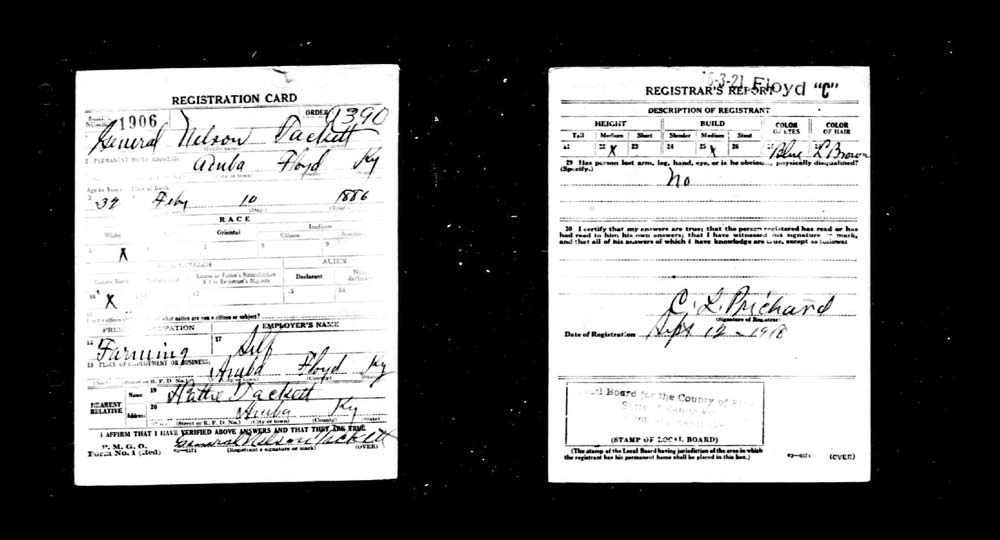 REGISTRATION CARD
1906
ORDER
1390
General Nelson Tackett
PERMANENT HOME ADDRESS:
Aruba Floyd Ky
Age in Years Date of Birth
32 Feby 10 1886
RACE
White Oriental Citizen
X
ALIEN
Declarant
X
citizen or subject?
OCCUPATION EMPLOYER'S NAME
16 17
Farming Self
18 PLACE OF EMPLOYMENT OR BUSINESS:
Aruba Floyd Ky
(Street or R. F. D. No.) (City or town) (County)
NEAREST RELATIVE
Name 19 Hattie Tackett
Address 20 Aruba Ky
(Street or R. F. D. No.) (City or town) (County)
I AFFIRM THAT I HAVE VERIFIED ABOVE ANSWERS AND THAT THEY ARE TRUE
General Nelson Tackett
P. M. G. O.
Form No. 1 (Red) (Registrant's signature or mark) (OVER)
-3-21 Floyd "C"
REGISTRAR'S REPORT
DESCRIPTION OF REGISTRANT
HEIGHT BUILD COLOR OF EYES COLOR OF HAIR
Tall Medium Short Slender Medium Stout
21 22 X 23 24 25 X 26 Blue L Brown
29 Has person lost arm, leg, hand, eye, or is he obviously physically disqualified?
(Specify.)
No
30 I certify that my answers are true; that the person registered has read or has
had read to him his own answers; that I have witnessed his signature or mark,
and that all of his answers of which I have knowledge are true, except as follows:
C. L. Prichard
(Signature of Registrar)
Date of Registration Sept 12 - 1918
Board for the County of
State of Kentucky
(STAMP OF LOCAL BOARD)
(The stamp of the Local Board having jurisdiction of the area in which
the registrant has his permanent home shall be placed in this box.)
(OVER)